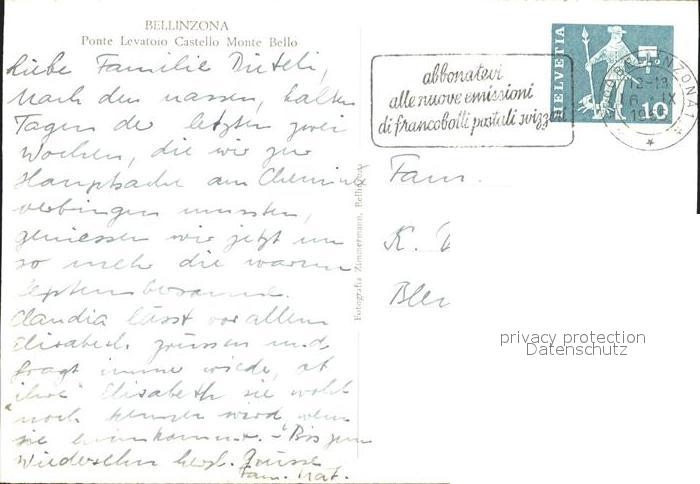 BELLINZONA
Ponte Levatoio Castello Monte Bello
Liebe Familie Diteli,
Nach den nassen, kalten
Tagen der letzten zwei
Wochen, die wir zur
Hauptsache am Cheminée
verbringen mussten,
geniessen wir jetzt um
so mehr die warme
Septembersonne.
Claudia lässt vor allem
Elisabeth grüssen und
fragt immer wieder, ob
ihre Elisabeth sie wohl
noch kennen wird, wenn
sie heimkommt. - Bis zum
Wiedersehn herzl. Grüsse
Fam.
Fotografia Zimmermann, Bellinzona
abbonatevi
alle nuove emissioni
di francobolli postali svizzeri
HELVETIA
10
BELLINZONA 1
12-13
IX
Fam.
K.
privacy protection
Datenschutz